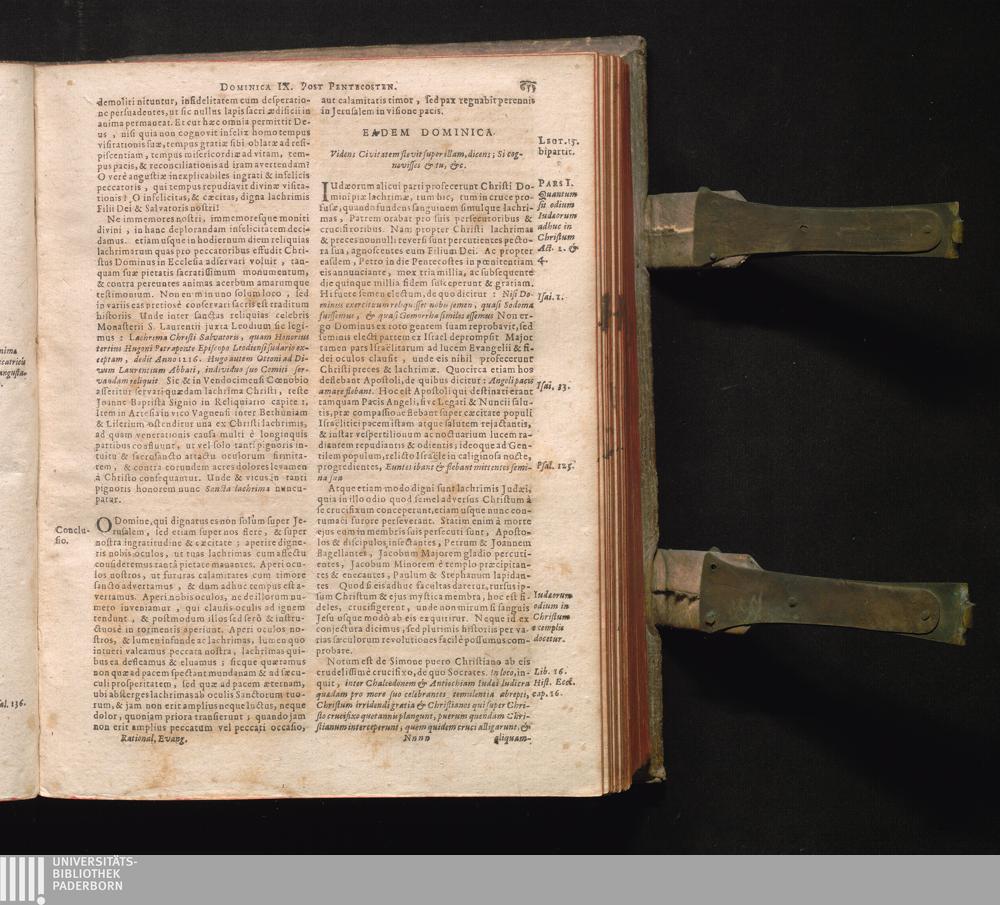 DOMINICA IX. POST PENTECOSTEN.
demoliti nituntur, infidelitatem cum desperatio-
ne persuadentes, ut sic nullus lapis sacri ædificii in
anima permaneat. Et cur hæc omnia permittit De-
us, nisi quia non cognovit infelix homo tempus
visitationis suæ, tempus gratiæ sibi oblatæ ad resi-
piscentiam, tempus misericordiæ ad vitam, tem-
pus pacis, & reconciliationis ad iram avertendam?
O verè angustiæ inexplicabiles ingrati & infelicis
peccatoris, qui tempus repudiavit divinæ visita-
tionis? O infelicitas, & cæcitas, digna lachrimis
Filii Dei & Salvatoris nostri!
Ne immemores nostri, immemoresque moniti
divini, in hanc deplorandam infelicitatem deci-
damus. etiam usque in hodiernum diem reliquias
lachrimarum quas pro peccatoribus effudit Chri-
stus Dominus in Ecclesia adservari voluit, tan-
quam suæ pietatis sacratissimum monumentum,
& contra pereuntes animas acerbum amarumque
testimonium. Non enim in uno solum loco, sed
in variis eas pretiosè conservari sacris est traditum
historiis Unde inter sanctas reliquias celebris
Monasterii S. Laurentii juxta Leodium sic legi-
mus: Lachrima Christi Salvatoris, quam Honorius
tertius Hugoni Petraponte Episcopo Leodiensi sudario ex-
ceptam, dedit Anno 1216. Hugo autem Ottoni ad Di-
vum Laurentium Abbati, individuo suo Comiti ser-
vandam reliquit. Sic & in Vendocimensi Cœnobio
asseritur servari quædam lachrima Christi, teste
Joanne Baptista Signio in Reliquiario capite 1.
Item in Artesia in vico Vagnensi inter Bethuniam
& Liserium ostenditur una ex Christi lachrimis,
ad quam venerationis causa multi è longinquis
partibus confluunt, ut vel solo tanti pignoris in-
tuitu & sacrosancto attactu oculorum firmita-
tem, & contra eorundem acres dolores levamen
à Christo consequantur. Unde & vicus in tanti
pignoris honorem nunc Sancta lachrima nuncu-
patur.
Conclu-
sio.
O Domine, qui dignatus es non solùm super Je-
rusalem, sed etiam super nos flere, & super
nostra ingratitudine & cæcitate; aperire digne-
ris nobis oculos, ut tuas lachrimas cum affectu
consideremus tantâ pietate manantes. Aperi ocu-
los nostros, ut futuras calamitates cum timore
sancto advertamus, & dum adhuc tempus est a-
vertamus. Aperi nobis oculos, ne de illorum nu-
mero inveniamur, qui clausis oculis ad ignem
tendunt, & postmodum illos sed serò & instru-
ctuosè in tormentis aperiunt. Aperi oculos no-
stros, & lumen infunde ac lachrimas, lumen quo
intueri valeamus peccata nostra, lachrimas qui-
bus ea defleamus & eluamus; sicque quæramus
non quæ ad pacem spectant mundanam & ad sæcu-
culi prosperitatem, sed quæ ad pacem æternam,
ubi absterges lachrimas ab oculis Sanctorum tuo-
rum, & jam non erit amplius neque luctus, neque
dolor, quoniam priora transierunt; quando jam
non erit amplius peccatum vel peccati occasio,
Rational. Evang.
aut calamitatis timor, sed pax regnabit perennis
in Jerusalem in visione pacis.
EADEM DOMINICA.
Videns Civitatem flevit super illam, dicens; Si cog-
novisses & tu, &c.
LECT. 15.
bipartit.
PARS I.
Quantum
sit odium
Iudæorum
adhuc in
Christum
Act. 2. &
4.
IUdæorum alicui parti profecerunt Christi Do-
mini piæ lachrimæ, tum hic, tum in cruce pro-
fusæ, quando fundens sanguinem simulque lachri-
mas, Patrem orabat pro suis persecutoribus &
crucifixoribus. Nam propter Christi lachrimas
& preces nonnulli reversi sunt percutientes pecto-
ra sua, agnoscentes eum Filium Dei. Ac propter
easdem, Petro in die Pentecostes in pœnitentiam
eis annunciante, mox tria millia, ac subsequente
die quinque millia fidem susceperunt & gratiam.
Hi fuere semen electum, de quo dicitur: Nisi Do-
minus exercituum reliquisset nobis semen, quasi Sodoma
fuissemus, & quasi Gomorrha similes essemus Non er-
go Dominus ex toto gentem suam reprobavit, sed
seminis electi partem ex Israel deprompsit Major
tamen pars Israëlitarum ad lucem Evangelii & fi-
dei oculos clausit, unde eis nihil profecerunt
Christi preces & lachrimæ. Quocirca etiam hos
deflebant Apostoli, de quibus dicitur: Angeli pacis
amarè flebant. Hoc est Apostoli qui destinati erant
tamquam Pacis Angeli, sive Legati & Nuncii salu-
tis, præ compassione flebant super cæcitate populi
Israëlitici pacem istam atque salutem rejactantis,
& instar vespertilionum ac noctuarum lucem ra-
diantem repudiantis & odientis; ideoque ad Gen-
tilem populum, relicto Israële in caliginosa nocte,
progredientes, Euntes ibant & flebant mittentes semi-
na sua
Isai. 1.
Isai. 33.
Psal. 125.
Atque etiam modo digni sunt lachrimis Judæi,
quia in illo odio quod semel adversus Christum à
se crucifixum conceperunt, etiam usque nunc con-
tumaci furore perseverant. Statim enim à morte
ejus eum in membris suis persecuti sunt, Aposto-
los & discipulos insectantes, Petrum & Joannem
flagellantes, Jacobum Majorem gladio percuti-
entes, Jacobum Minorem è templo præcipitan-
tes & enecantes, Paulum & Stephanum lapidan-
tes Quod si eis adhuc facultas daretur, rursus ip-
sum Christum & ejus mystica membra, hoc est fi-
deles, crucifigerent, unde non mirum si sanguis
Jesu usque modò ab eis exquiritur. Neque id ex
conjectura dicimus, sed plurimis historiis per va-
rias sæculorum revolutiones facilè possumus com-
probare.
Iudæorum
odium in
Christum
exemplis
docetur.
Notum est de Simone puero Christiano ab eis
crudelissimè crucifixo, de quo Socrates. In loco, in-
quit, inter Chalcedonem & Antiochiam Iudæi ludicra
quædam pro more suo celebrantes, temulentia abrepti,
Christum irridendi gratia & Christianos qui super Chri-
sto crucifixo quotannis plangunt, puerum quendam Chri-
stianum interceperunt, quem quidem cruci alligarunt, &
Lib. 16.
Hist. Eccl.
cap. 16.
Nnnn
aliquam-
UNIVERSITÄTS-
BIBLIOTHEK
PADERBORN